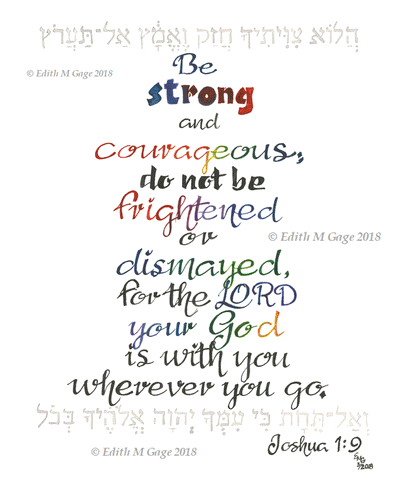 הֲלוֹא צִוִּיתִיךָ חֲזַק וֶאֱמָץ אַל־תַּעֲרֹץ
© Edith M Gage 2018
Be
strong
and
courageous;
do not be
frightened
or
dismayed,
for the LORD
your God
is with you
wherever you go.
© Edith M Gage 2018
וְאַל־תֵּחָת כִּי עִמְּךָ יְהוָה אֱלֹהֶיךָ בְּכֹל
Joshua 1:9
© Edith M Gage 2018